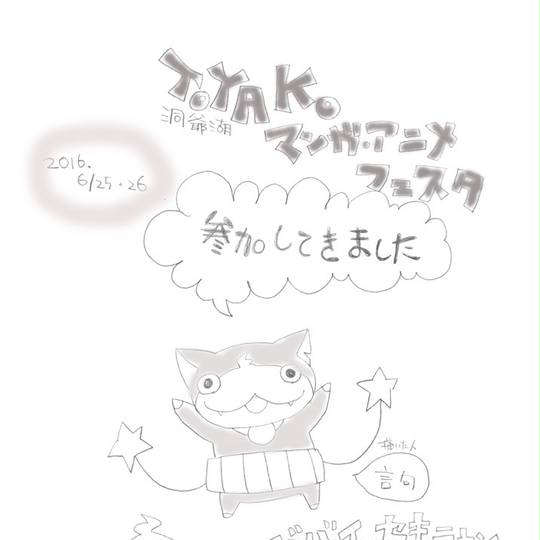 TOYAKO
洞爺湖
マンガ・アニメ
フェスタ
2016.
6/25・26
参加してきました
描いた人
言句